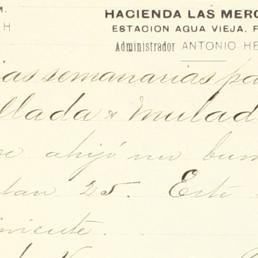 M. HACIENDA LAS MERC
H ESTACION AGUA VIEJA. F
Administrador ANTONIO HE
ias semanarias pa
llada & mulad
se ahijó un bur
tan 25. Este
niente.